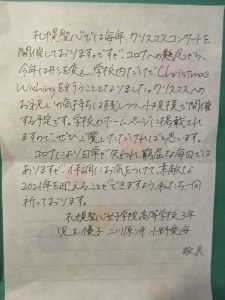 札幌聖心では毎年、クリスマスコンサートを
開催しております。ですが、コロナへの懸念から、
今年は形を変え、学校内だけで"Christmas
Wishing"を行うこととなりました。クリスマスへの
お祝いの気持ちは
する予定です。学校のホームページに掲載され
ますので、ぜひご覧いただければと思います。
コロナにより日常が失われ、窮屈な毎日では
ありますが、体調にお気をつけて、素敵な
2021年を迎えることができますよう、私たち一同
祈っております。
札幌聖心女子学院高等学校3年
優子 小野愛海
敬具